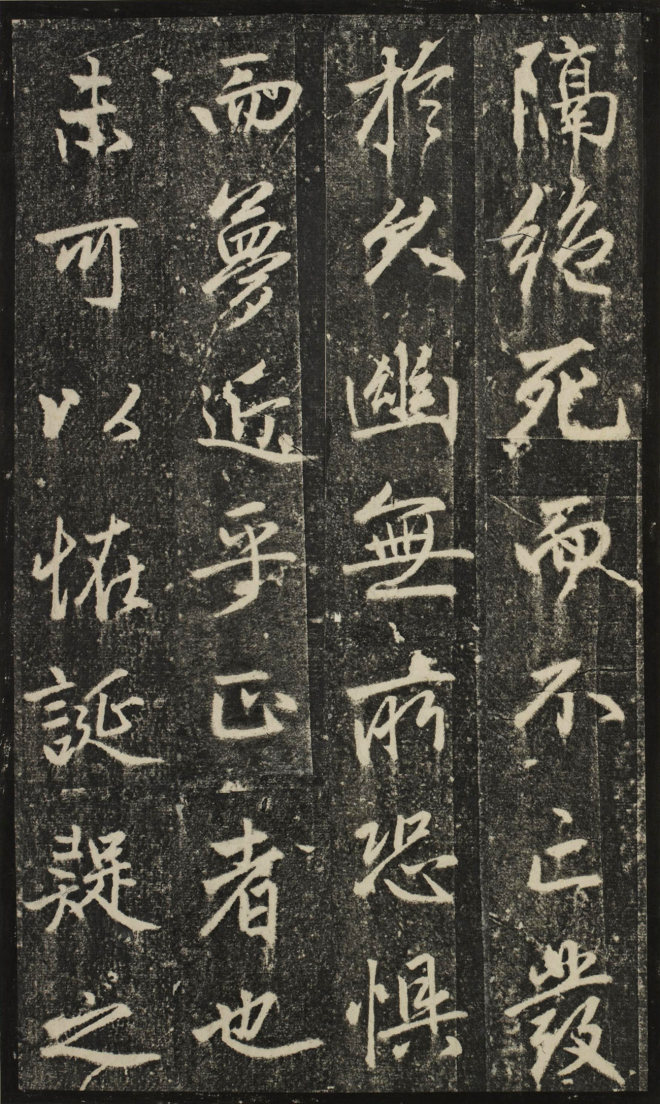 隔絕死而不亡發
於久幽無所恐懼
而夢近乎正者也
未可以怪誕疑之